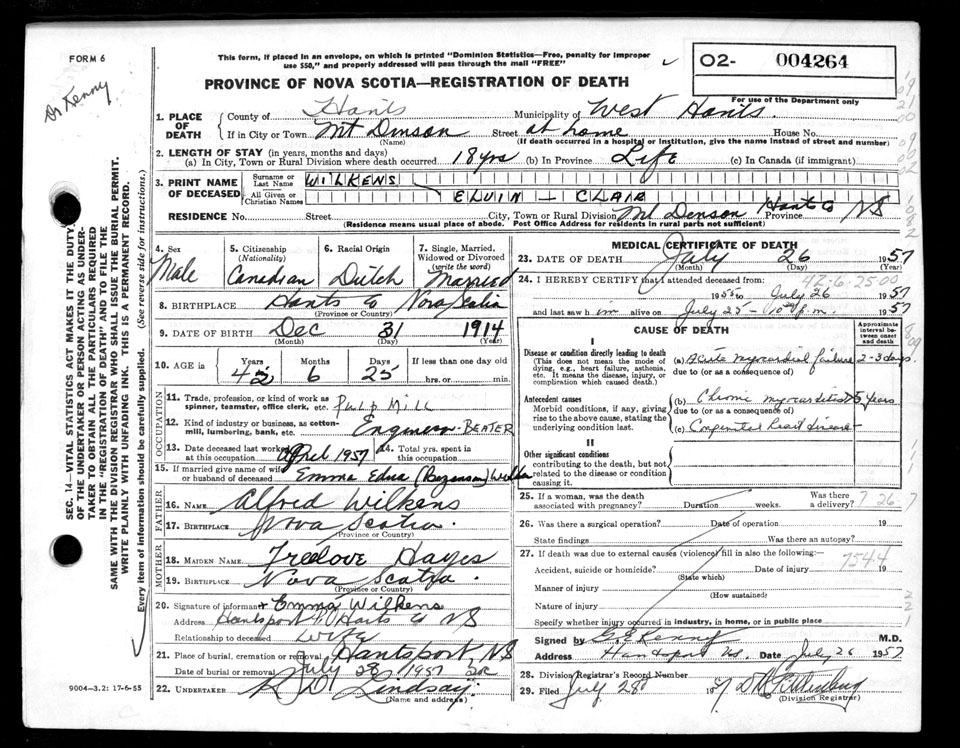 FORM 6
Dr Kenny
This form, if placed in an envelope, on which is printed "Dominion Statistics—Free, penalty for improper
use $50," and properly addressed will pass through the mail "FREE"
02- 004264
For use of the Department only
PROVINCE OF NOVA SCOTIA—REGISTRATION OF DEATH
SEC. 14—VITAL STATISTICS ACT MAKES IT THE DUTY
OF THE UNDERTAKER OR PERSON ACTING AS UNDER-
TAKER TO OBTAIN ALL THE PARTICULARS REQUIRED
IN THE "REGISTRATION OF DEATH" AND TO FILE THE
SAME WITH THE DIVISION REGISTRAR WHO SHALL ISSUE THE BURIAL PERMIT.
WRITE PLAINLY WITH UNFADING INK. THIS IS A PERMANENT RECORD.
Every item of information should be carefully supplied. (See reverse side for instructions.)
1. PLACE OF DEATH
County of Hants Municipality of West Hants.
If in City or Town Mt Denson Street at home House No.
(Name) (If death occurred in a hospital or institution, give the name instead of street and number)
2. LENGTH OF STAY (in years, months and days)
(a) In City, Town or Rural Division where death occurred 18 yrs (b) In Province Life (c) In Canada (if immigrant)
3. PRINT NAME OF DECEASED
Surname or Last Name WILKENS
All Given or Christian Names ELVIN - CLAIR
RESIDENCE No. Street City, Town or Rural Division Mt Denson Hants Co Province NS
(Residence means usual place of abode. Post Office Address for residents in rural parts not sufficient)
4. Sex Male
5. Citizenship (Nationality) Canadian
6. Racial Origin Dutch
7. Single, Married, Widowed or Divorced (write the word) Married
8. BIRTHPLACE Hants Co Nova Scotia
(Province or Country)
9. DATE OF BIRTH Dec 31 1914
(Month) (Day) (Year)
10. AGE in Years 42 Months 6 Days 25 If less than one day old
hrs. or min.
OCCUPATION
11. Trade, profession, or kind of work as
spinner, teamster, office clerk, etc. Pulp Mill
12. Kind of industry or business, as cotton-
mill, lumbering, bank, etc. BEATER
13. Date deceased last worked
at this occupation April 1957
14. Total yrs. spent in
this occupation
15. If married give name of wife
or husband of deceased Emma Edna (Bezanson)
FATHER
16. NAME Alfred Wilkens
17. BIRTHPLACE Nova Scotia.
(Province or Country)
MOTHER
18. MAIDEN NAME Freelove Hayes
19. BIRTHPLACE Nova Scotia.
(Province or Country)
20. Signature of informant x Emma Wilkens
Address Hantsport Hants Co NS
Relationship to deceased wife
21. Place of burial, cremation or removal Hantsport NS
Date of burial or removal July 28 1957
22. UNDERTAKER Lindsay
(Name and address)
9004-3.2: 17-6-55
MEDICAL CERTIFICATE OF DEATH
23. DATE OF DEATH July 26 1957
(Month) (Day) (Year)
42-6-2500
24. I HEREBY CERTIFY that I attended deceased from:
1955 to July 26 1957
and last saw h im alive on July 25 - 1957
CAUSE OF DEATH
Approximate interval between onset and death
I
Disease or condition directly leading to death
(This does not mean the mode of
dying, e.g., heart failure, asthenia,
etc. It means the disease, injury, or
complication which caused death.)
(a) Acute myocardial failure 2-3 days
due to (or as a consequence of)
Antecedent causes
Morbid conditions, if any, giving
rise to the above cause, stating the
underlying condition last.
(b) Chronic myocarditis 5 years
due to (or as a consequence of)
(c) Congenital Heart disease
II
Other significant conditions
contributing to the death, but not
related to the disease or condition
causing it.
25. If a woman, was the death
associated with pregnancy? Duration weeks. Was there
a delivery? 7 26-7
26. Was there a surgical operation? Date of operation 19
State findings Was there an autopsy?
27. If death was due to external causes (violence) fill in also the following:—
7544
Accident, suicide or homicide? Date of injury 19
(State which)
Manner of injury
(How sustained)
Nature of injury
Specify whether injury occurred in industry, in home, or in public place
Signed by G E Kenny M.D.
Address Hantsport N.S. Date July 26 1957
28. Division Registrar's Record Number
29. Filed July 28 1957
(Division Registrar)